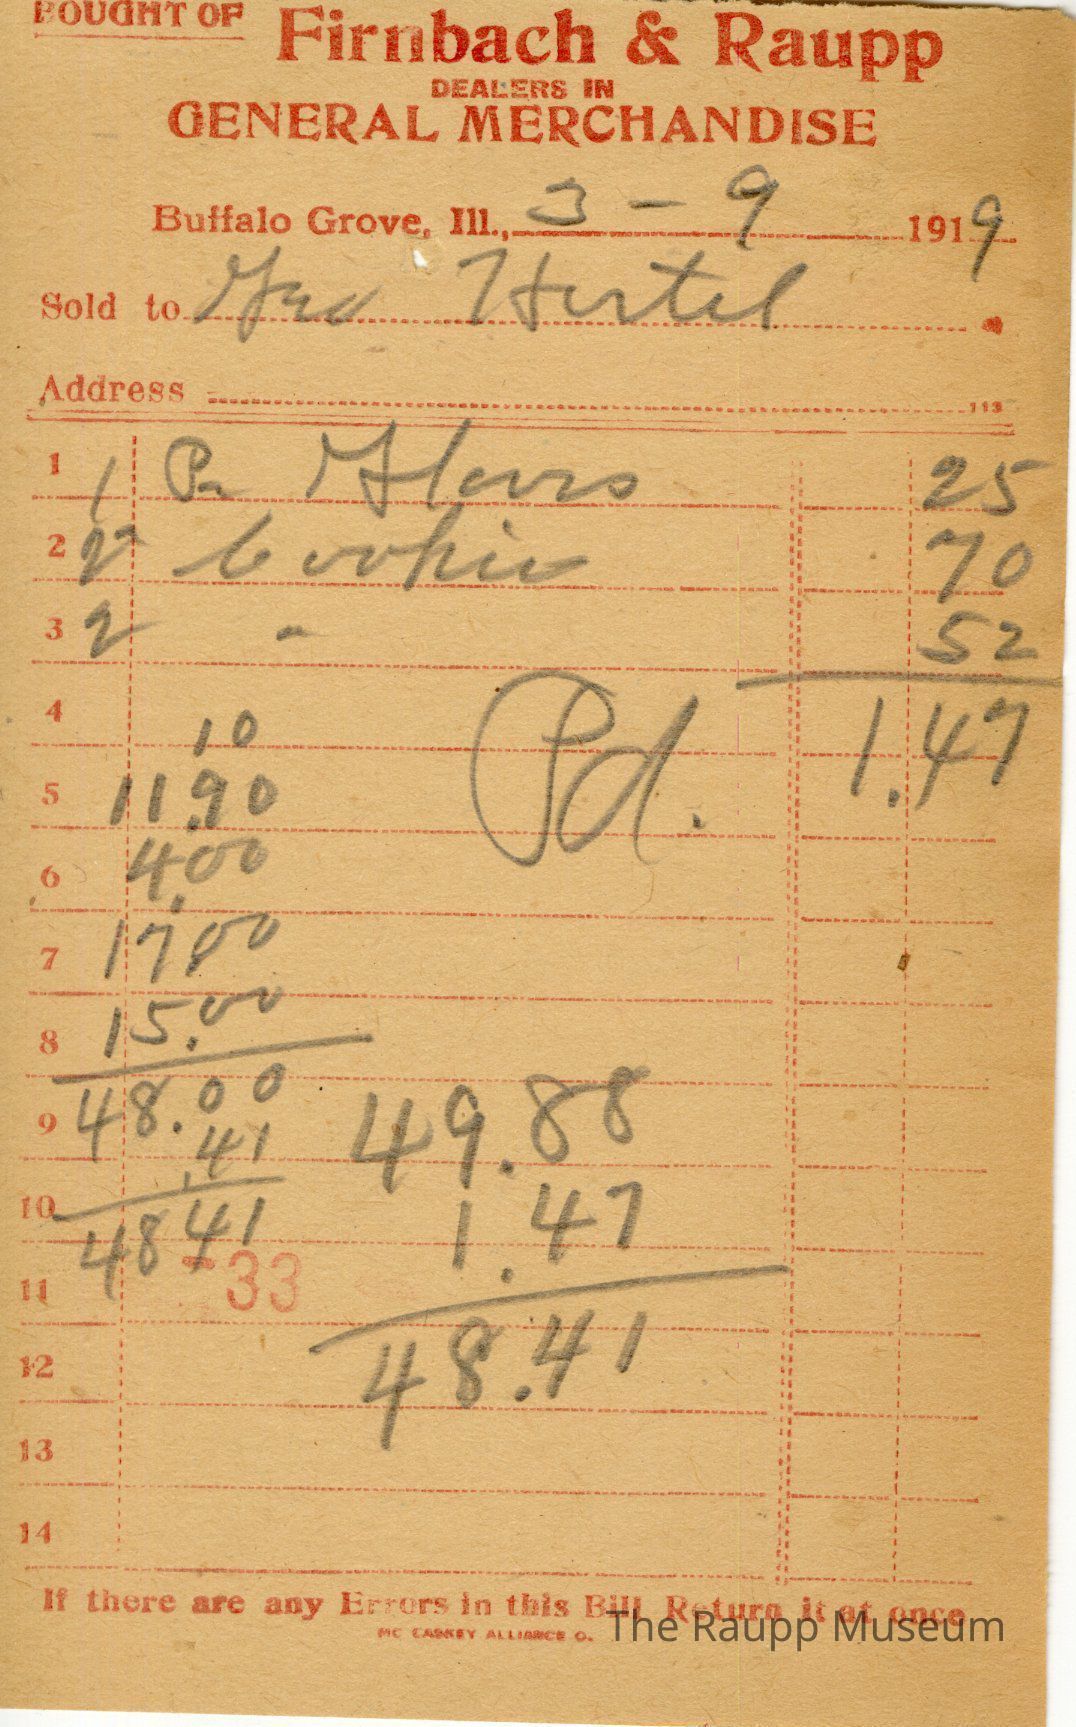 BOUGHT OF
Firnbach & Raupp
DEALERS IN
GENERAL MERCHANDISE
Buffalo Grove, Ill., 3 - 9 1919
Sold to Geo Hertel
Address
113
1 1 Pr Gloves 25
2 2 Cookie 70
3 2 " 52
4 1.47
Pd.
10
5 11.90
6 4.00
7 17.00
8 15.00
9 48.00 49.88
.41
10 48.41 1.47
11 -33
12 48.41
13
14
If there are any Errors in this Bill Return it at once
MC CASKEY ALLIANCE O.
The Raupp Museum